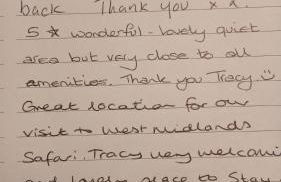 back Thank you x x.
5 ☆ wonderful - lovely quiet
area but very close to all
amenities. Thank you Tracy. ☺
Great location for our
visit to West Midlands
Safari. Tracy very welcomi
and lovely place to stay